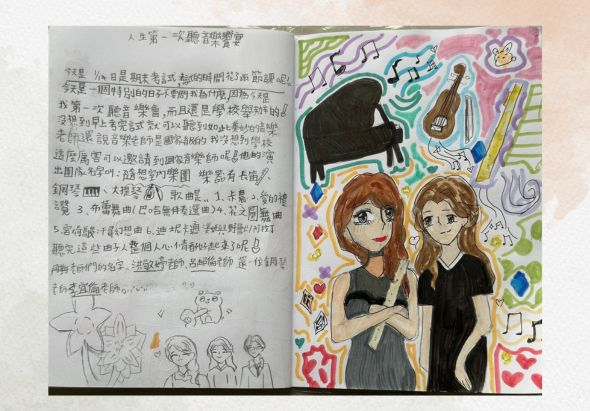 人生第一次聽音樂饗宴
今天是 1/14日是期末考試 考的時間花了兩節課呢!
今天是一個特別的日子不要問我為什麼,因為今天是
我第一次聽音樂會,而且還是學校舉辦的!
沒想到早上考完試就可以聽到如此美妙的音樂
老師還說音樂老師是國家級的我沒想到學校
這麼厲害可以邀請到國家音樂師呢!他的演
出團隊名字叫:隨想室內樂團 樂器有長笛
鋼琴、大提琴 歌曲是:1.卡農 2.愛的禮
讚 3.布蘭舞曲(巴哈無伴奏選曲)4.花之圓舞曲
5.宮崎駿 幻想曲 6.迪尼卡通 美女與野獸
聽完這些曲子人整個人心情都好起來了呢!
老師們的名字:洪敬婷老師,呂超倫老師 還一位鋼琴
老師 老師